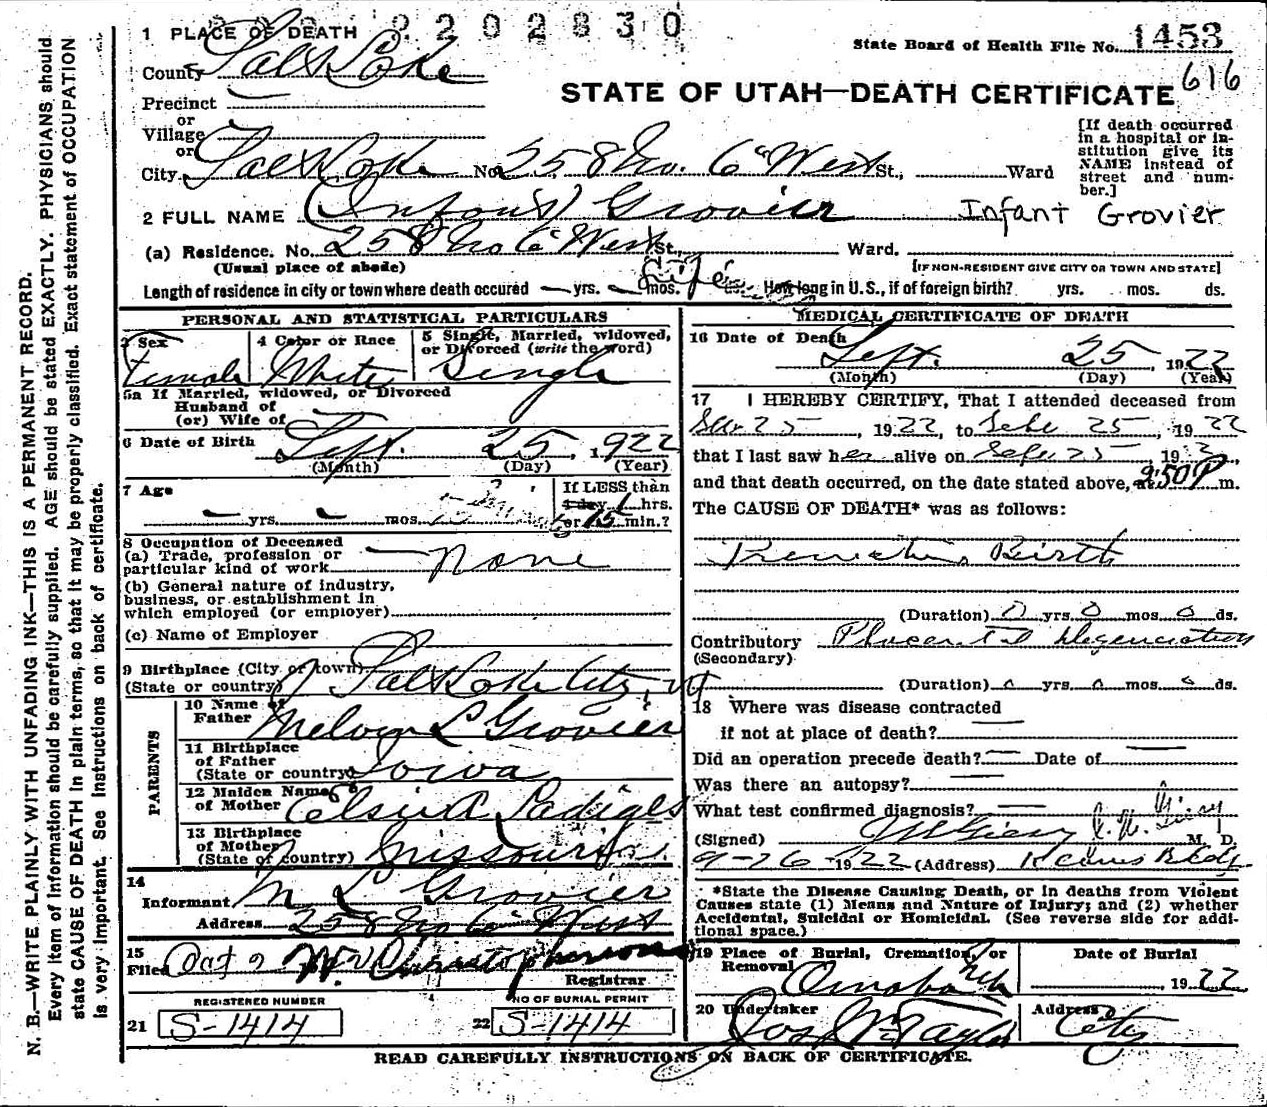 2202830
1 PLACE OF DEATH
State Board of Health File No. 1453
County Salt Lake
STATE OF UTAH—DEATH CERTIFICATE 616
Precinct
or
Village
or
City Salt Lake No. 258 No. 6" West St., Ward
[If death occurred in a hospital or in-
stitution give its
NAME instead of
street and num-
ber.]
2 FULL NAME (Infant) Grovier Infant Grovier
(a) Residence. No. 258 No 6" West St. Ward.
(Usual place of abode) [IF NON-RESIDENT GIVE CITY OR TOWN AND STATE]
Length of residence in city or town where death occured — yrs. — mos. Life ds. How long in U.S., if of foreign birth? yrs. mos. ds.
PERSONAL AND STATISTICAL PARTICULARS
3 Sex 4 Color or Race 5 Single, Married, widowed,
or Divorced (write the word)
Female White Single
5a If Married, widowed, or Divorced
Husband of
(or) Wife of
6 Date of Birth Sept. 25, 1922
(Month) (Day) (Year)
7 Age If LESS than
1 day 1 hrs.
— yrs. — mos. or 15 min.?
8 Occupation of Deceased
(a) Trade, profession or
particular kind of work None
(b) General nature of industry,
business, or establishment in
which employed (or employer)
(c) Name of Employer
9 Birthplace (City or town)
(State or country) Salt Lake City, Ut
PARENTS
10 Name of
Father Melvin L Grovier
11 Birthplace
of Father
(State or country) Iowa
12 Maiden Name
of Mother Elsie A
13 Birthplace
of Mother
(State or country) Missouri
14
Informant M L Grovier
Address 258 No 6" West
15
Filed Oct 2 Wm Christopherson
Registrar
REGISTERED NUMBER NO OF BURIAL PERMIT
21 S-1414 22 S-1414
MEDICAL CERTIFICATE OF DEATH
16 Date of Death
Sept. 25, 1922
(Month) (Day) (Year)
17 I HEREBY CERTIFY, That I attended deceased from
25, 1922, to Sept 25, 1922
that I last saw her alive on Sept 25 192
and that death occurred, on the date stated above, at 2:50 P m.
The CAUSE OF DEATH* was as follows:
Premature Birth
(Duration) 0 yrs 0 mos 0 ds.
Contributory Placental Degeneration
(Secondary)
(Duration) 0 yrs 0 mos. 0 ds.
18 Where was disease contracted
if not at place of death?
Did an operation precede death? Date of
Was there an autopsy?
What test confirmed diagnosis?
(Signed) M. D.
9-26-1922 (Address) Kearns Bldg.
*State the Disease Causing Death, or in deaths from Violent
Causes state (1) Means and Nature of Injury; and (2) whether
Accidental, Suicidal or Homicidal. (See reverse side for addi-
tional space.)
19 Place of Burial, Cremation, or
Removal Omaha Neb
Date of Burial
1922
20 Undertaker Jos Wm Taylor Address City
READ CAREFULLY INSTRUCTIONS ON BACK OF CERTIFICATE.
N. B.—WRITE PLAINLY WITH UNFADING INK—THIS IS A PERMANENT RECORD.
Every item of information should be carefully supplied. AGE should be stated EXACTLY. PHYSICIANS should
state CAUSE OF DEATH in plain terms, so that it may be properly classified. Exact statement of OCCUPATION
is very important. See Instructions on back of certificate.